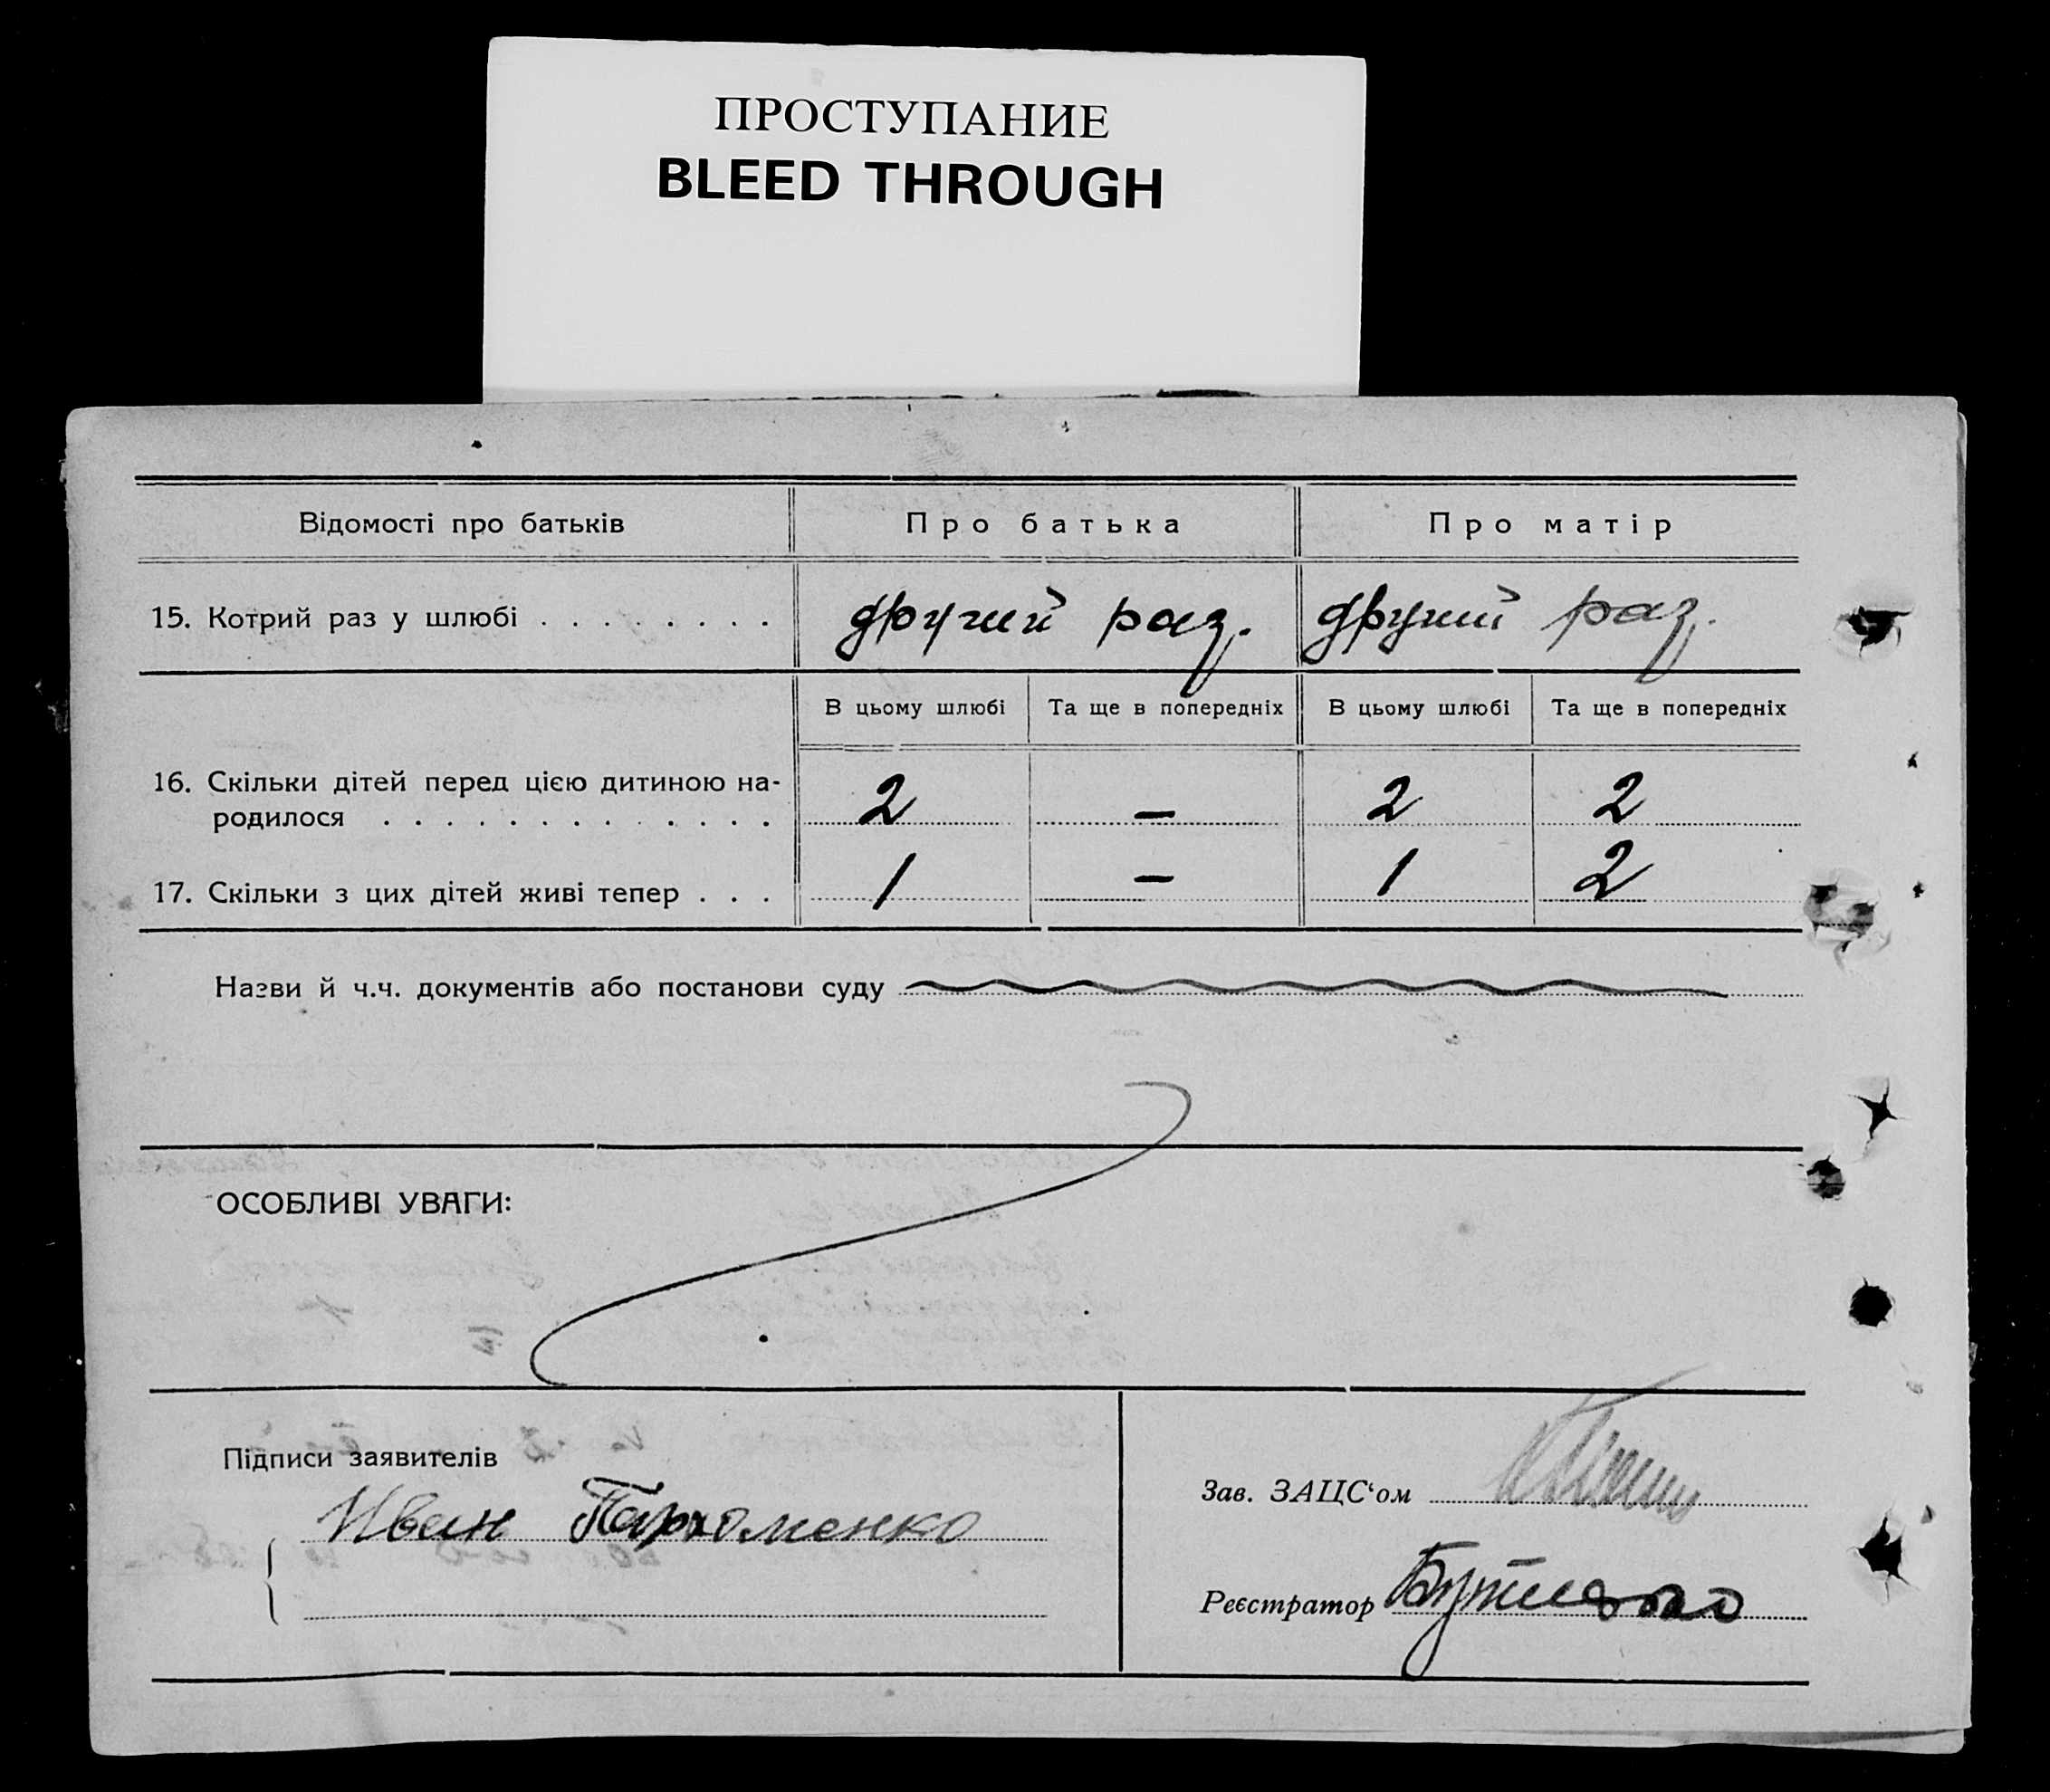 ПРОСТУПАНИЕ
BLEED THROUGH
Відомості про батьків Про батька Про матір
15. Котрий раз у шлюбі . . . . . . . . другий раз. другий раз.
В цьому шлюбі Та ще в попередніх В цьому шлюбі Та ще в попередніх
16. Скільки дітей перед цією дитиною на-
родилося . . . . . . . . . . . . . 2 — 2 2
17. Скільки з цих дітей живі тепер . . . 1 — 1 2
Назви й ч.ч. документів або постанови суду
ОСОБЛИВІ УВАГИ:
Підписи заявителів
Иван Пархоменко
Зав. ЗАЦС‘ом
Реєстратор